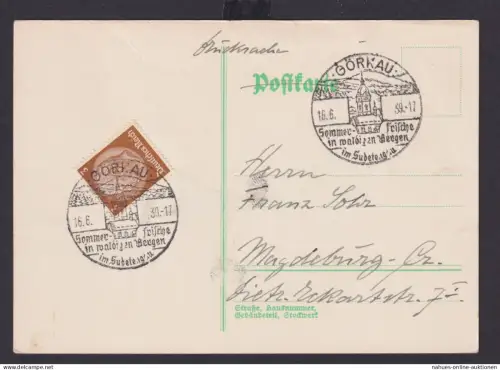 Drucksache
Postkarte
GÖRKAU
16.6. 39.-17
Sommer- frische
in waldigen Bergen
im Sudetengau
Deutsches Reich
GÖRKAU
16.6. 39.-17
Sommer- frische
in waldigen Bergen
im Sudetengau
Herrn
Franz Sohr
Magdeburg-Cr.
Dietr. Eckartstr.
Straße, Hausnummer,
Gebäudeteil, Stockwerk